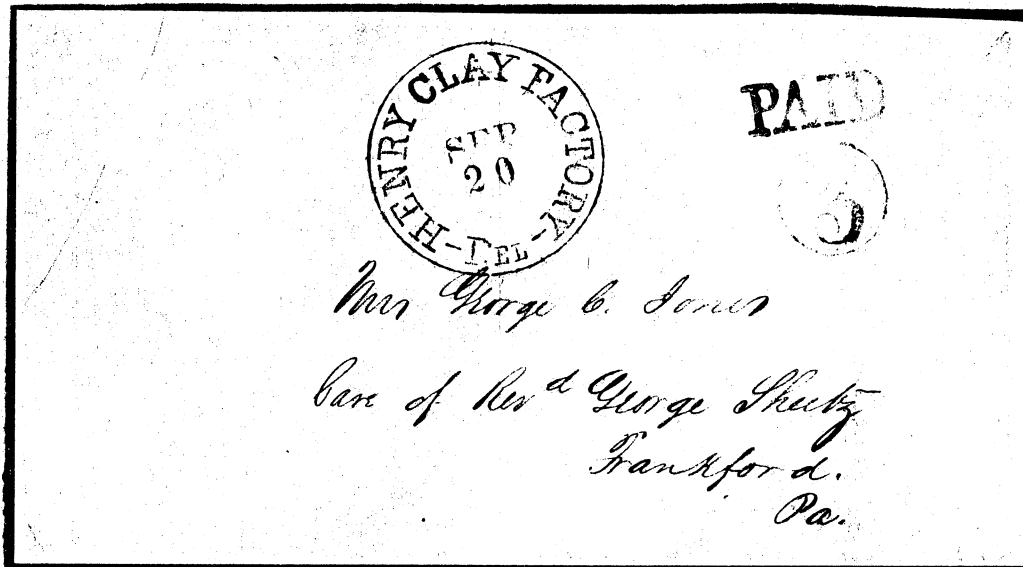 HENRY CLAY FACTORY
SEP
20
-DEL-
PAID
3
Mrs George C. Jones
Care of Revd George Sheetz
Frankford.
Pa.